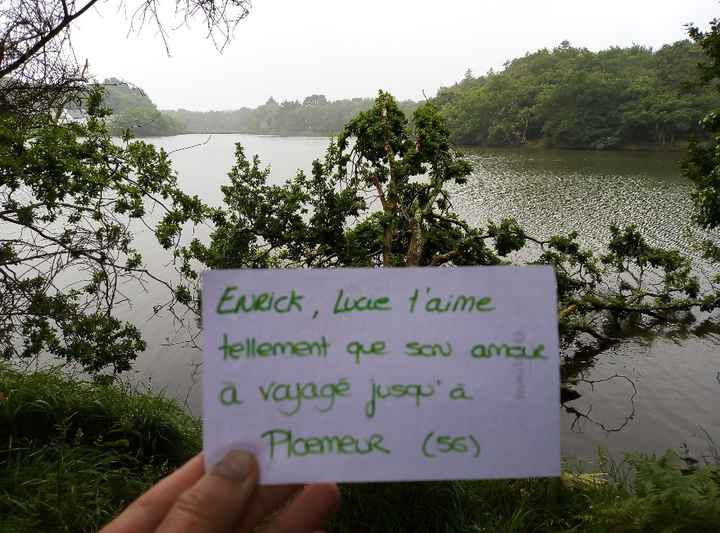 ENRICK, Lucie t'aime
tellement que son amour
à voyagé jusqu'à
PLOEMEUR (56)